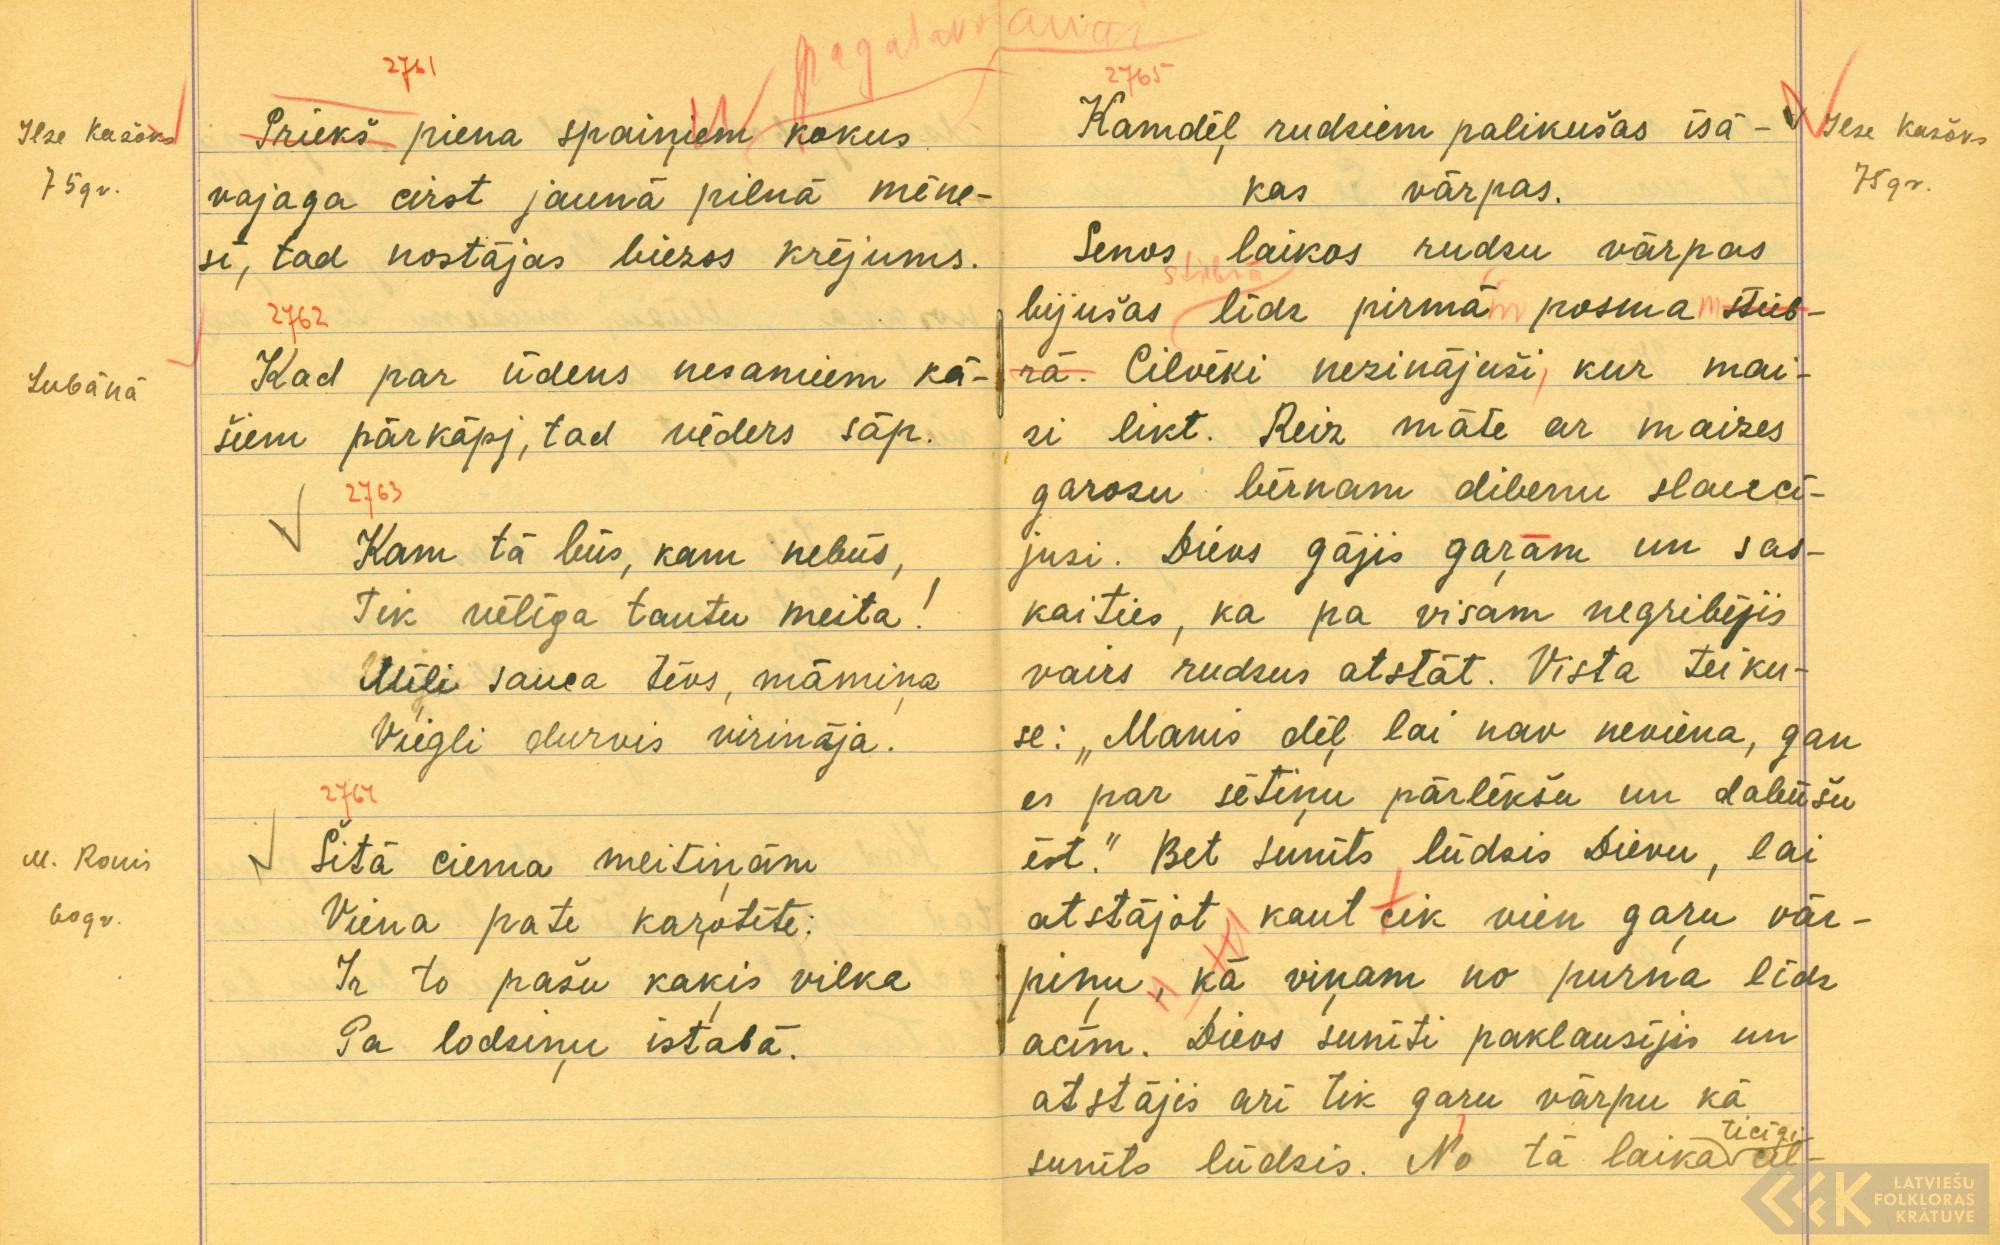 pagatavošanai
2761
Ilze Kašoks
75gv.
Priekš piena spaiņiem kokus
vajaga cirst jaunā pilnā mēne-
sī, tad nostājas biezss krējums.
2762
Lubānā
Kad par ūdens nesamiem kā-
šiem pārkāpj, tad vēders sāp.
2763
Kam tā būs, kam nebūs,
Tik vēlīga tautu meita!
Mīļi sauca tēvs, māmiņa
Viegli durvis virināja.
2764
M. Ronis
60gv.
Šitā ciema meitiņām
Viena pate kaŗotīte:
Ir to pašu kaķis vilka
Pa lodziņu istabā.
2765
Ilze Kašoks
75gv.
Kamdēļ rudziem palikušas īsā-
kas vārpas.
Senos laikos rudzu vārpas
stiebrā
bijušas līdz pirmām posmam stieb-
rā. Cilvēki nezinājuši, kur mai-
zi likt. Reiz māte ar maizes
garozu bērnam dibenu slaucī-
jusi. Dievs gājis gaŗām un sas-
kaities, ka pa visam negribējis
vairs rudzus atstāt. Vista teiku-
se: „Manis dēļ lai nav neviena, gan
es par sētiņu pārlēkšu un dabūšu
ēst." Bet sunīts lūdzis Dievu, lai
atstājot kaut cik vien gaŗu vār-
piņu, kā viņam no purna līdz
acīm. Dievs sunīti paklausījis un
atstājis arī tik gaŗu vārpu kā
ticīgi
sunīts lūdzis. No tā laika cil-
LATVIEŠU
FOLKLORAS
KRĀTUVE